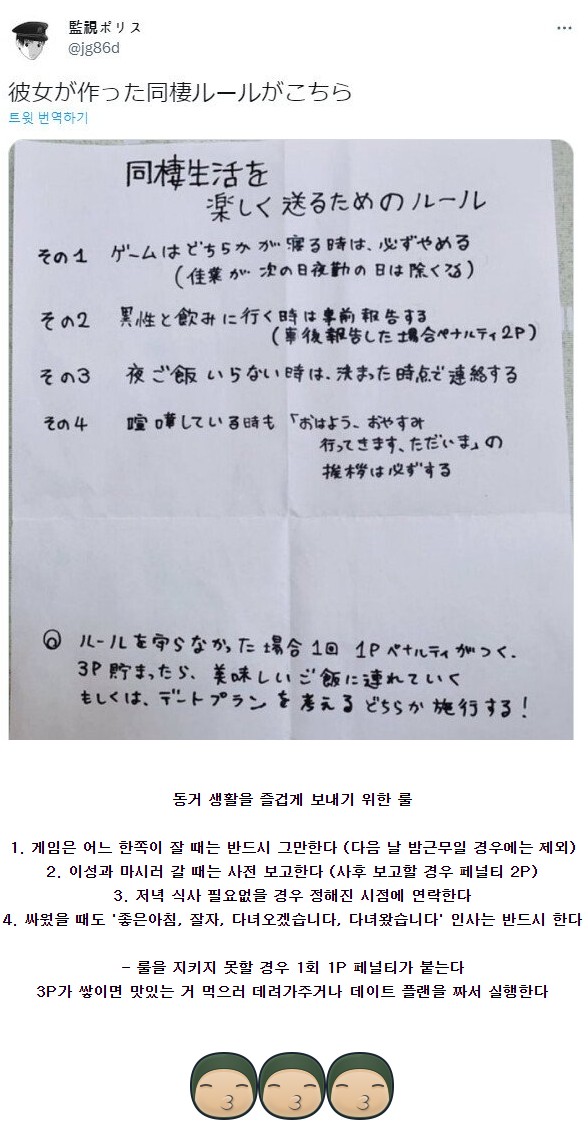 監視ポリス
@jg86d
彼女が作った同棲ルールがこちら
트윗 번역하기
同棲生活を
楽しく送るためのルール
その1 ゲームはどちらかが寝る時は、必ずやめる
(佳業が次の日夜勤の日は除くる)
その2 異性と飲みに行く時は事前報告する
(事後報告した場合ペナルティ2P)
その3 夜ご飯いらない時は、決まった時点で連絡する
その4 喧嘩している時も「おはよう、おやすみ
行ってきます、ただいま」の
挨拶は必ずする
◎ ルールを守らなかった場合1回 1Pペナルティがつく.
3P貯まったら、美味しいご飯に連れていく
もしくは、デートプランを考えるどちらか施行する!
동거 생활을 즐겁게 보내기 위한 룰
1. 게임은 어느 한쪽이 잘 때는 반드시 그만한다 (다음 날 밤근무일 경우에는 제외)
2. 이성과 마시러 갈 때는 사전 보고한다 (사후 보고할 경우 페널티 2P)
3. 저녁 식사 필요없을 경우 정해진 시점에 연락한다
4. 싸웠을 때도 '좋은아침, 잘자, 다녀오겠습니다, 다녀왔습니다' 인사는 반드시 한다
- 룰을 지키지 못할 경우 1회 1P 페널티가 붙는다
3P가 쌓이면 맛있는 거 먹으러 데려가주거나 데이트 플랜을 짜서 실행한다